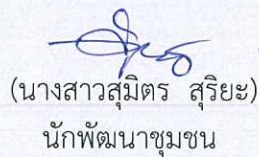 (นางสาวสุมิตร สุริยะ)
นักพัฒนาชุมชน